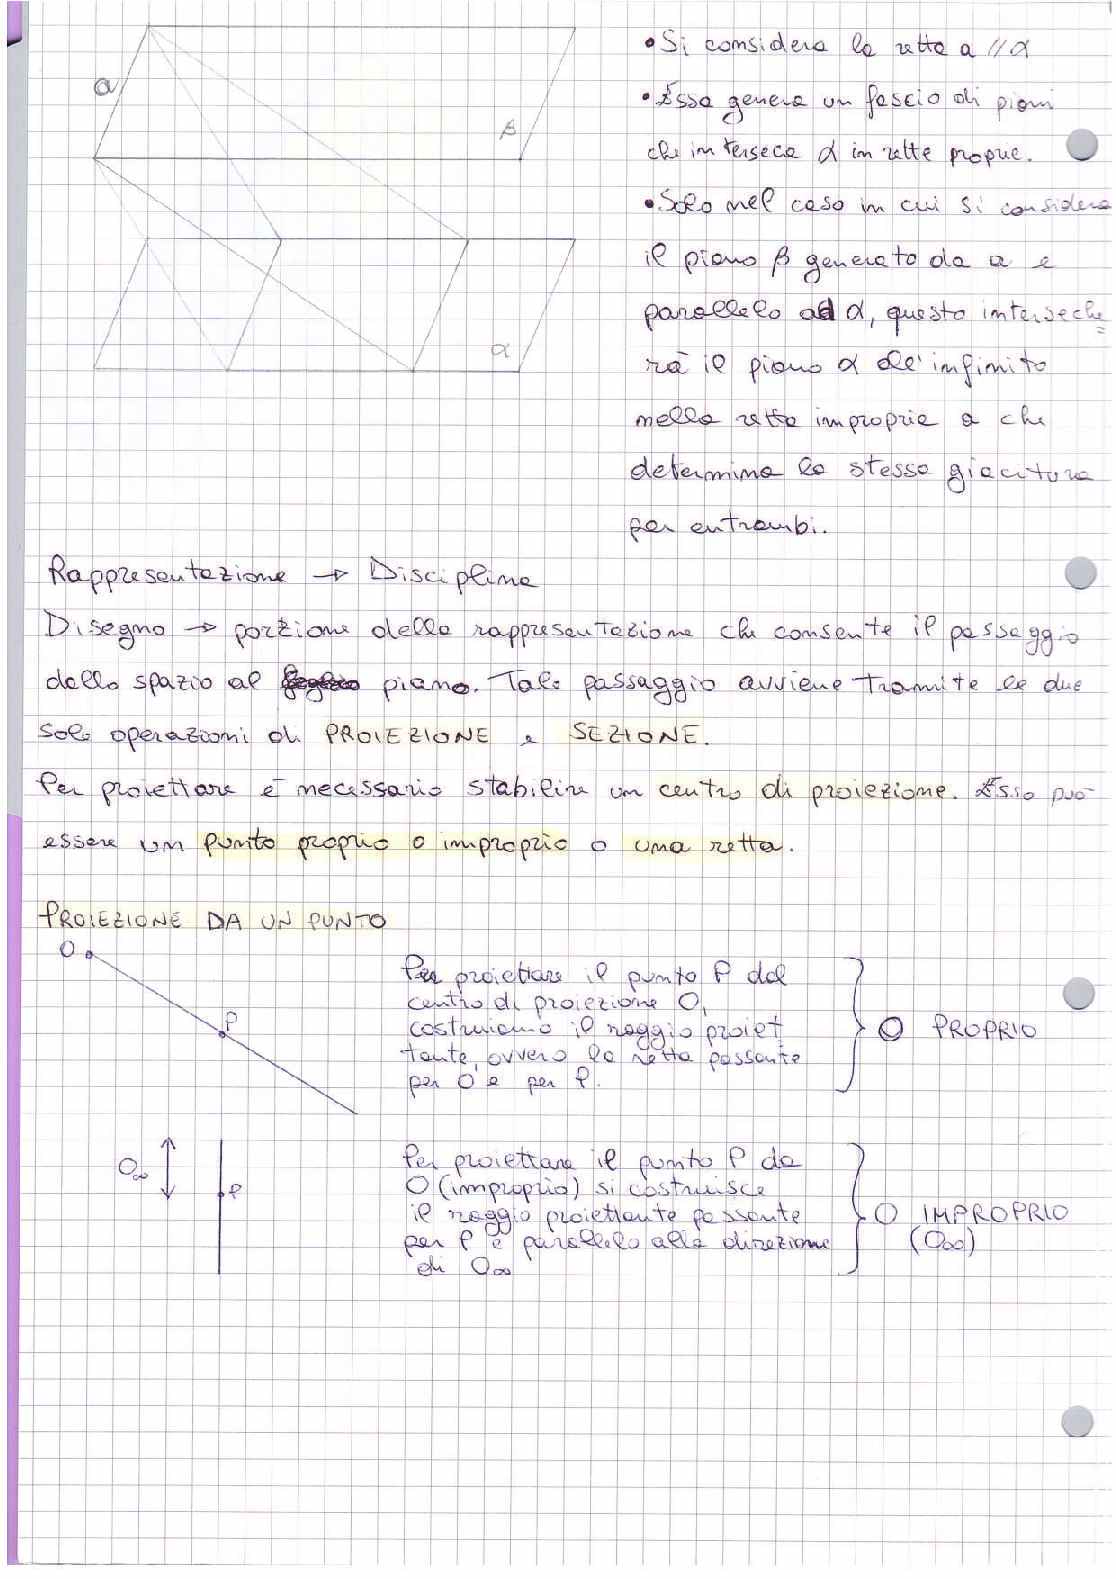 a
β
α
• Si considera la retta a // α
• Essa genera un fascio di piani
che interseca α in rette proprie.
• Solo nel caso in cui si considera
il piano β generato da a e
parallelo ad α, questo interseche=
rà il piano α all'infinito
nella retta impropria a che
determina la stessa giacitura
per entrambi.
Rappresentazione → Disciplina
Disegno → porzione della rappresentazione che consente il passaggio
dallo spazio al piano. Tale passaggio avviene tramite le due
sole operazioni di PROIEZIONE e SEZIONE.
Per proiettare è necessario stabilire un centro di proiezione. Esso può
essere un punto proprio o improprio o una retta.
PROIEZIONE DA UN PUNTO
O
P
Per proiettare il punto P dal
centro di proiezione O,
costruiamo il raggio proiet
tante, ovvero la retta passante
per O e per P.
O PROPRIO
O∞
P
Per proiettare il punto P da
O (improprio) si costruisce
il raggio proiettante passante
per P e parallelo alla direzione
di O∞
O IMPROPRIO
(O∞)